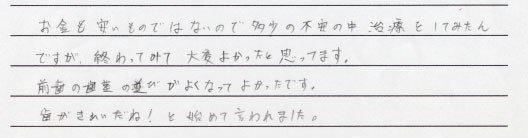 お金も安いものではないので多少の不安の中、治療をしてみたん
ですが、終わってみて大変よかったと思ってます。
前歯の歯茎の並びがよくなってよかったです。
歯がきれいだね！と始めて言われました。